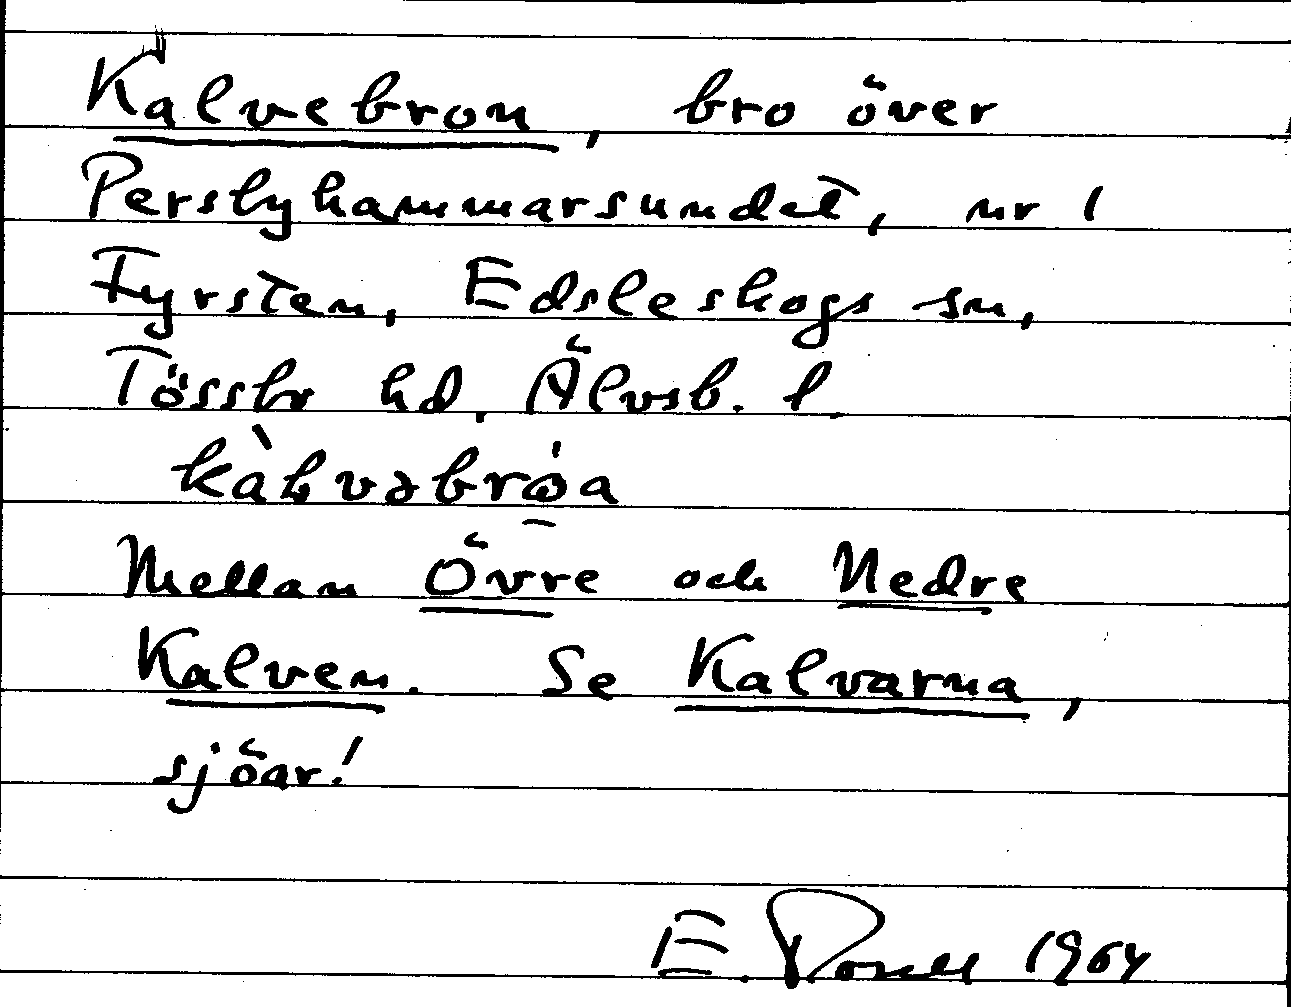 Kalvebron, bro över
Persbyhammarsundet, nr 1
Fyrsten, Edsleskogs sn,
Tössbo hd. Älvsb. l.
Mellan Övre och Nedre
Kalven. Se Kalvarna,
sjöar!
E. 1964